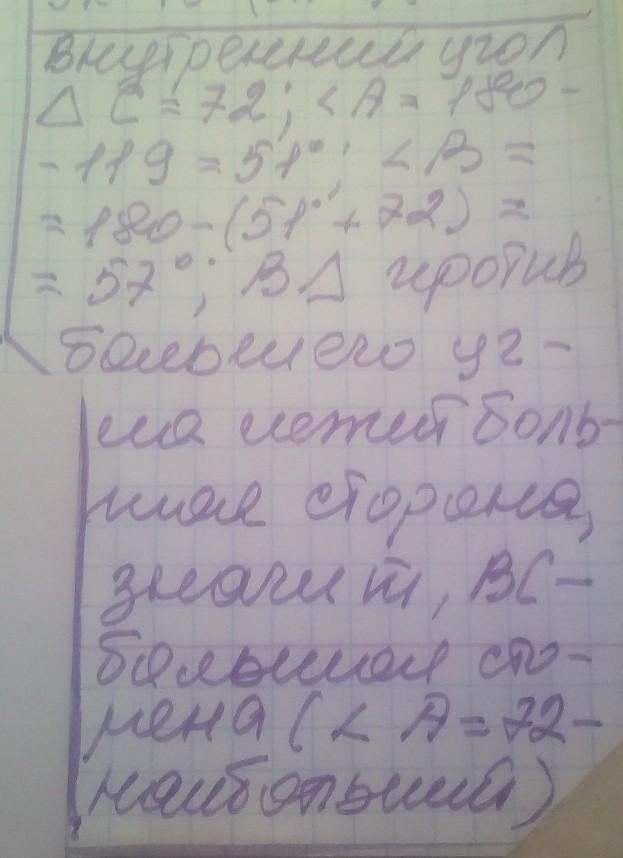 внутренний угол
△ C = 72; ∠A = 180 -
- 119 = 51°; ∠B =
= 180 - (51° + 72) =
= 57°; В△ против
большего уг-
ла лежит боль-
шая сторона,
значит, BC -
большая сто-
рона (∠ A = 72 -
наибольший)